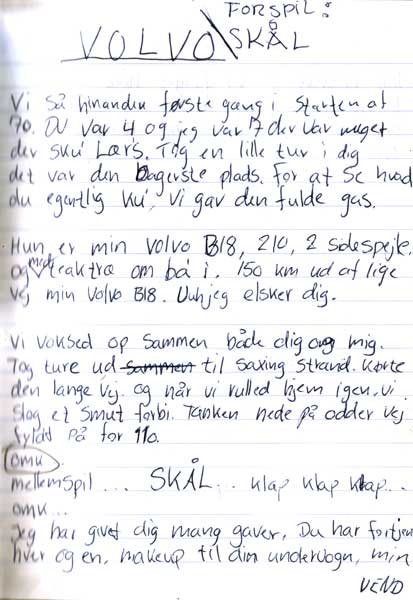 FORSPIL:
VOLVO \ SKÅL
Vi så hinanden første gang i starten af
70. DU var 4 og jeg var 7 der var meget
der sku' Læres. Tog en lille tur i dig
det var den bagerste plads. For at se hvad
du egentlig ku', vi gav den fulde gas.
Hun er min Volvo B18, 210, 2 sidespejle.
og med teaktræ om bå i. 150 km ud af lige
vej min Volvo B18. Uuh jeg elsker dig.
Vi voksed op sammen både dig og mig.
Tog ture ud sammen til saxing strand. Kørte
den lange vej. og når vi rulled hjem igen, vi
slog et smut forbi. Tanken nede på odder vej
fyldt På for 110.
omk
mellemspil ... SKÅL ... klap klap klap...
omk...
Jeg har givet dig mang gaver, Du har fortjen
hver og en, makeup til din undervogn, min
VEND